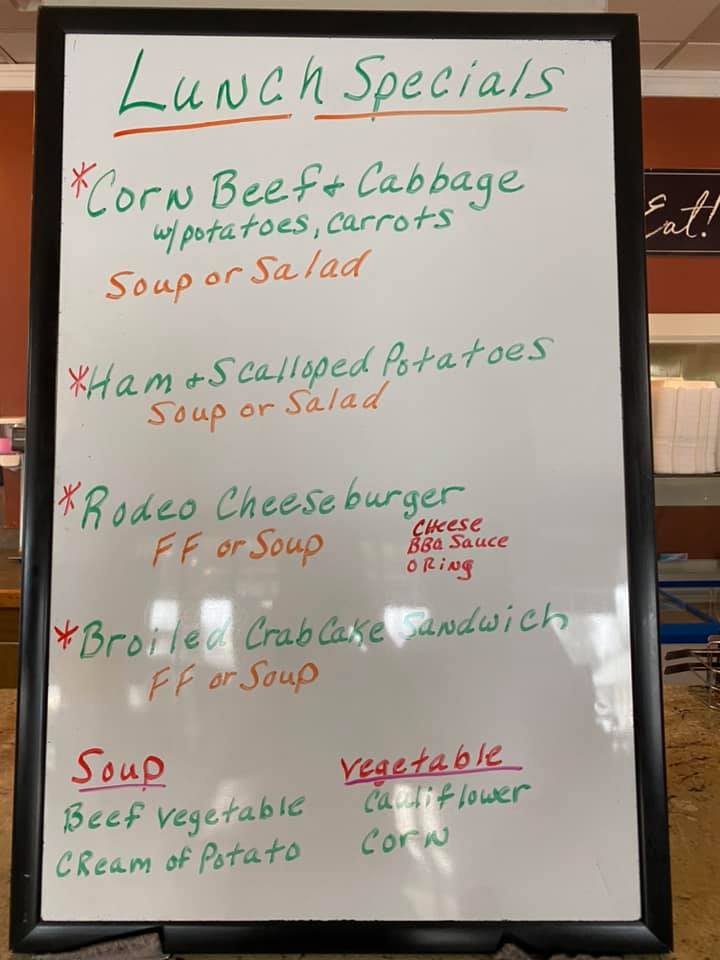 Lunch Specials
*Corn Beef + Cabbage
w/potatoes, carrots
Soup or Salad
*Ham + Scalloped Potatoes
Soup or Salad
*Rodeo Cheeseburger
FF or Soup
Cheese
BBQ Sauce
O Ring
*Broiled Crab Cake Sandwich
FF or Soup
Soup
Beef vegetable
Cream of Potato
Vegetable
Cauliflower
Corn
Eat!